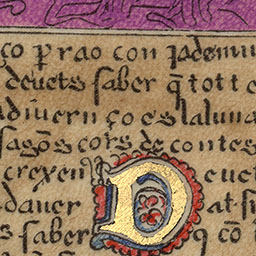 ço p̱ rao con
deuets saber q̄ tot t
adiuern ço es la luna
sagōs cors de contes
crexen D euet
dauer
s saber q cō